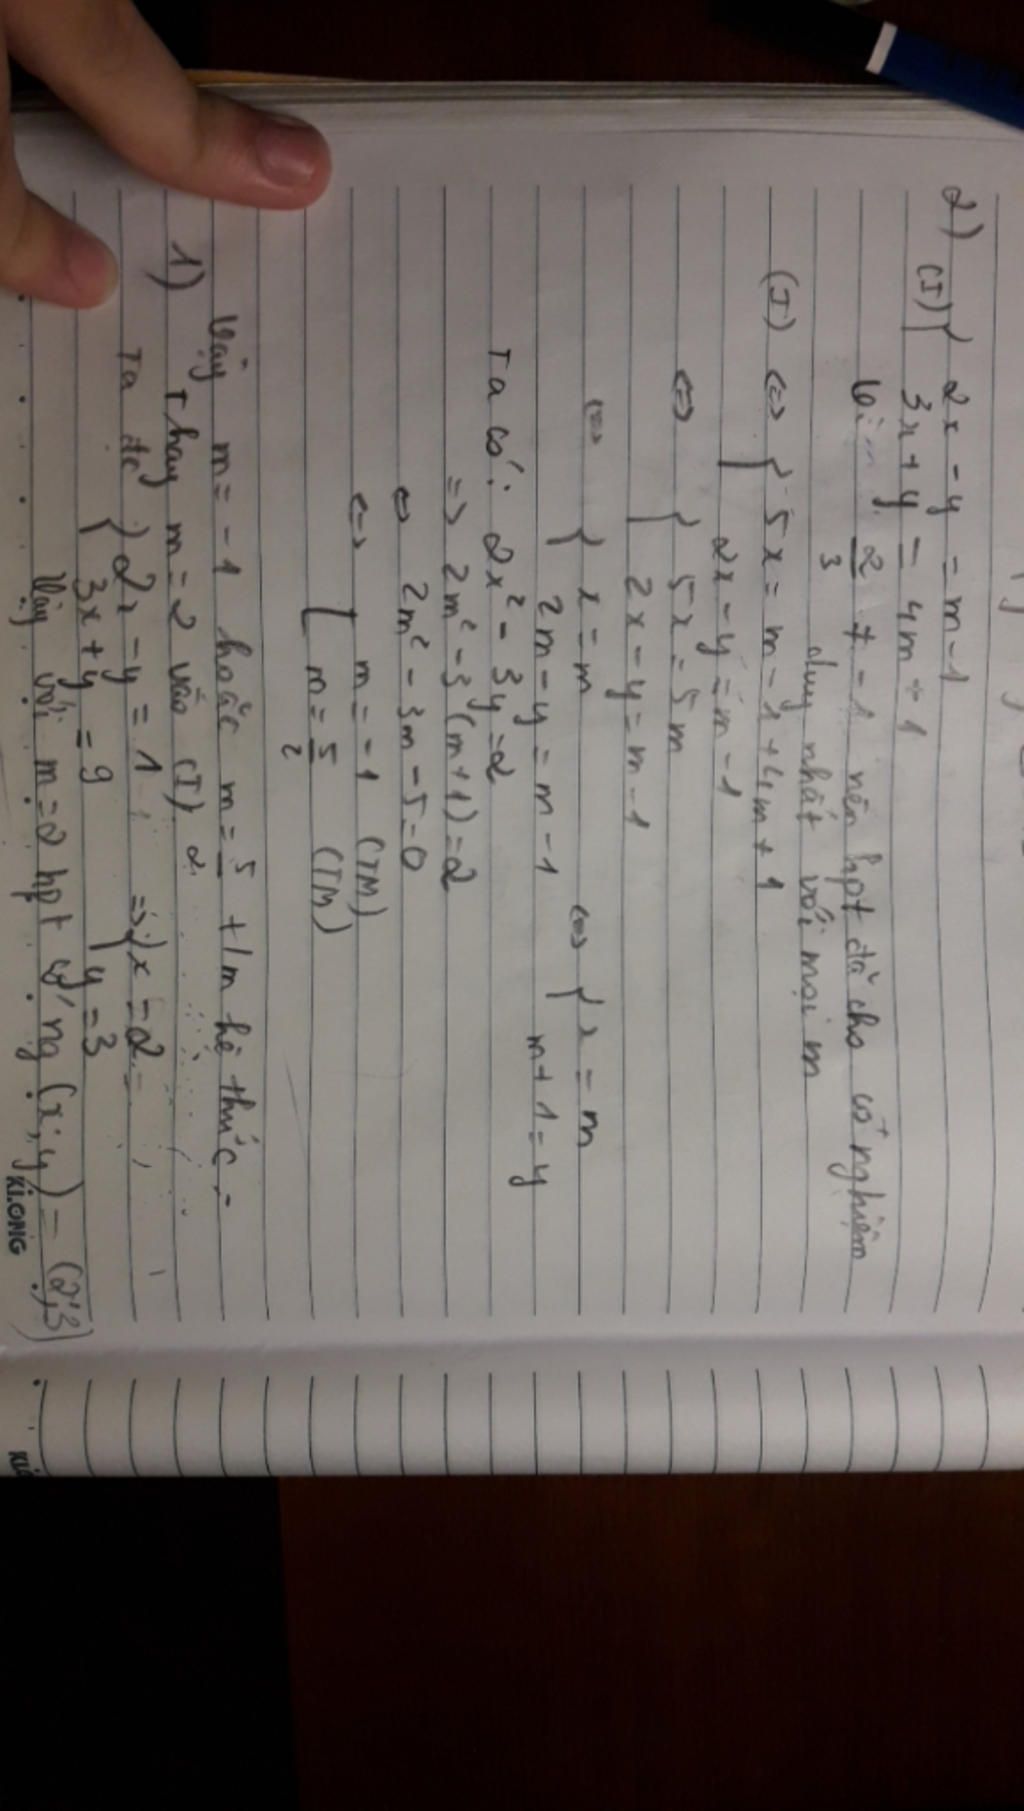 2)
(I) { 2x - y = m - 1
3x + y = 4m + 1
Vì 2/3 ≠ -1 nên hpt đã cho có nghiệm
duy nhất với mọi m
(I) <=> { 5x = m - 1 + 4m + 1
2x - y = m - 1
<=> { 5x = 5m
2x - y = m - 1
<=> { x = m <=> { x = m
2m - y = m - 1 m + 1 = y
Ta có: 2x² - 3y = 2
=> 2m² - 3(m + 1) = 2
<=> 2m² - 3m - 5 = 0
<=> [ m = -1 (TM)
m = 5/2 (TM)
Vậy m = -1 hoặc m = 5/2 t/m hệ thức
1) Thay m = 2 vào (I)
Ta đc { 2x - y = 1 => { x = 2
3x + y = 9 y = 3
Vậy với m = 2 hpt có ng (x; y) = (2; 3)
KLONG